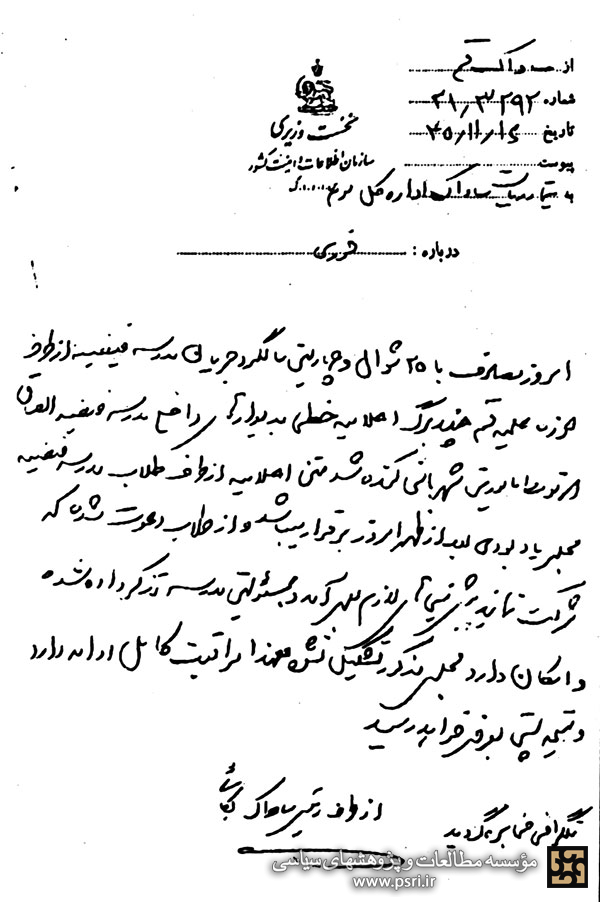 از ساواک قم
شماره ۲۱/۳۲۹۲
تاریخ ۴۵/۱۱/۱۶
پیوست
نخست وزیری
سازمان اطلاعات و امنیت کشور
به تیمسار ریاست ساواک اداره کل سوم
درباره : فوری
امروز مصادف با ۲۵ شوال و چهارمین سالگرد جریان مدرسه فیضیه از طرف
علمیه قم چند برگ اعلامیه خطی به دیوارهای داخل مدرسه فیضیه الصاق
که توسط مامورین شهربانی کنده شد متن اعلامیه از طرف طلاب مدرسه فیضیه
مجلس یادبودی بعد از ظهر امروز برقرار میباشد و از طلاب دعوت شده که
شرکت نمایند پیش بینی های لازم بعمل آمد و بمسئولین مدرسه تذکر داده شده
و امکان دارد مجلس مذکور تشکیل نشود معهذا مراقبت کامل ادامه دارد
و نتیجه بعرض خواهد رسید
از طرف رئیس ساواک
تلگرافی مخابره گردید
مؤسسه مطالعات و پژوهشهای سیاسی
www.psri.ir